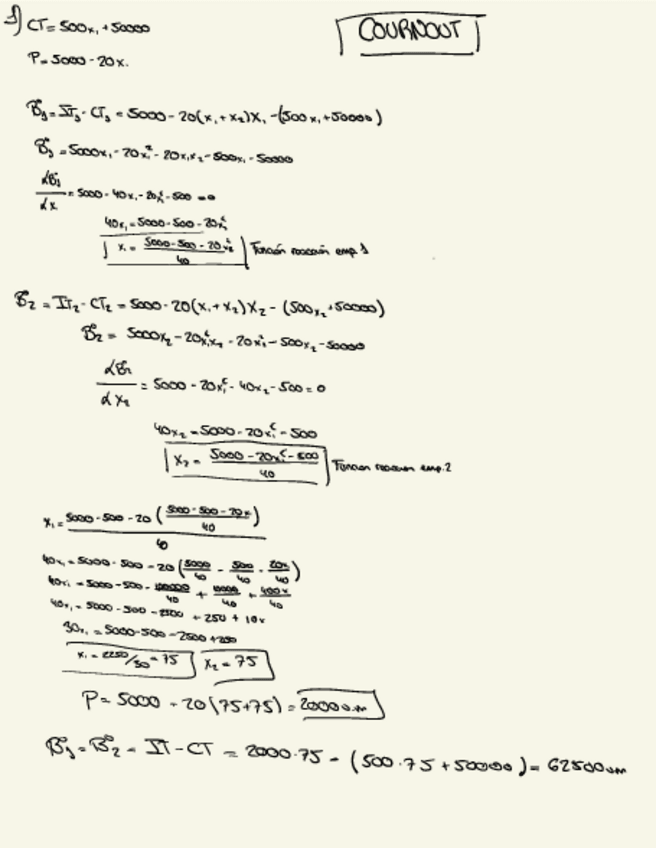 1) CT = 500x₁ + 50000
COURNOUT
P = 5000 - 20x.
B₁ = IT₁ - CT₁ = 5000 - 20(x₁ + x₂)x₁ - (500x₁ + 50000)
B₁ = 5000x₁ - 20x₁² - 20x₁x₂ - 500x₁ - 50000
dB₁/dx₁ = 5000 - 40x₁ - 20x₂ᶜ - 500 = 0
40x₁ = 5000 - 500 - 20x₂ᶜ
x₁ = (5000 - 500 - 20x₂ᶜ)/40 Función reacción emp. 1
B₂ = IT₂ - CT₂ = 5000 - 20(x₁ + x₂)x₂ - (500x₂ + 50000)
B₂ = 5000x₂ - 20x₁ᶜx₂ - 20x₂² - 500x₂ - 50000
dB₂/dx₂ = 5000 - 20x₁ᶜ - 40x₂ - 500 = 0
40x₂ = 5000 - 20x₁ᶜ - 500
x₂ = (5000 - 20x₁ᶜ - 500)/40 Función reacción emp. 2
x₁ = (5000 - 500 - 20((5000 - 500 - 20x)/40))/40
40x₁ = 5000 - 500 - 20(5000/40 - 500/40 - 20x/40)
40x₁ = 5000 - 500 - 100000/40 + 10000/40 + 400x/40
40x₁ = 5000 - 500 - 2500 + 250 + 10x
30x₁ = 5000 - 500 - 2500 + 250
x₁ = 2250/30 = 75 x₂ = 75
P = 5000 - 20(75+75) = 2000 u.m
B₁ = B₂ = IT - CT = 2000·75 - (500·75 + 50000) = 62500 um